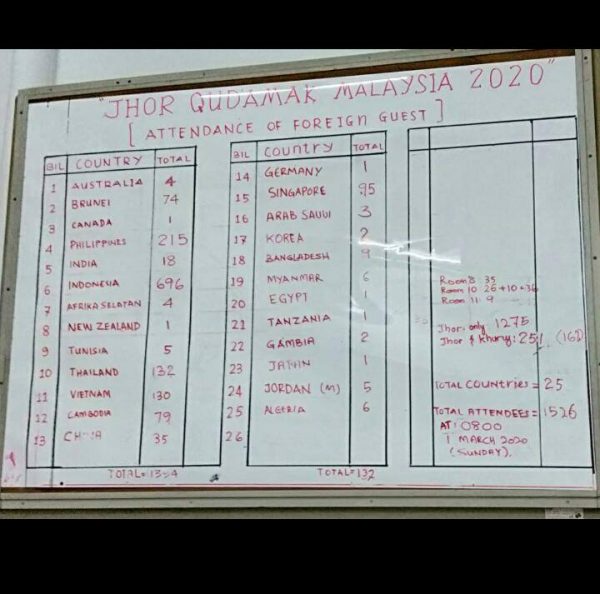 "JHOR QUDAMAK MALAYSIA 2020"
[ATTENDANCE OF FOREIGN GUEST]
BIL COUNTRY TOTAL
1 AUSTRALIA 4
2 BRUNEI 74
3 CANADA 1
4 PHILIPPINES 215
5 INDIA 18
6 INDONESIA 696
7 AFRIKA SELATAN 4
8 NEW ZEALAND 1
9 TUNISIA 5
10 THAILAND 132
11 VIETNAM 130
12 CAMBODIA 79
13 CHINA 35
TOTAL=1394
BIL COUNTRY TOTAL
14 GERMANY 1
15 SINGAPORE 95
16 ARAB SAUDI 3
17 KOREA 2
18 BANGLADESH 9
19 MYANMAR 6
20 EGYPT 1
21 TANZANIA 1
22 GAMBIA 2
23 JAPAN 1
24 JORDAN (M) 5
25 ALGERIA 6
26
TOTAL=132
Room 8 35
Room 10 26+10+36
Room 11 9
Jhor only 1275
Jhor & Khuruj: 251
TOTAL COUNTRIES = 25
TOTAL ATTENDEES = 1526
AT: 0800
1 MARCH 2020
(SUNDAY).